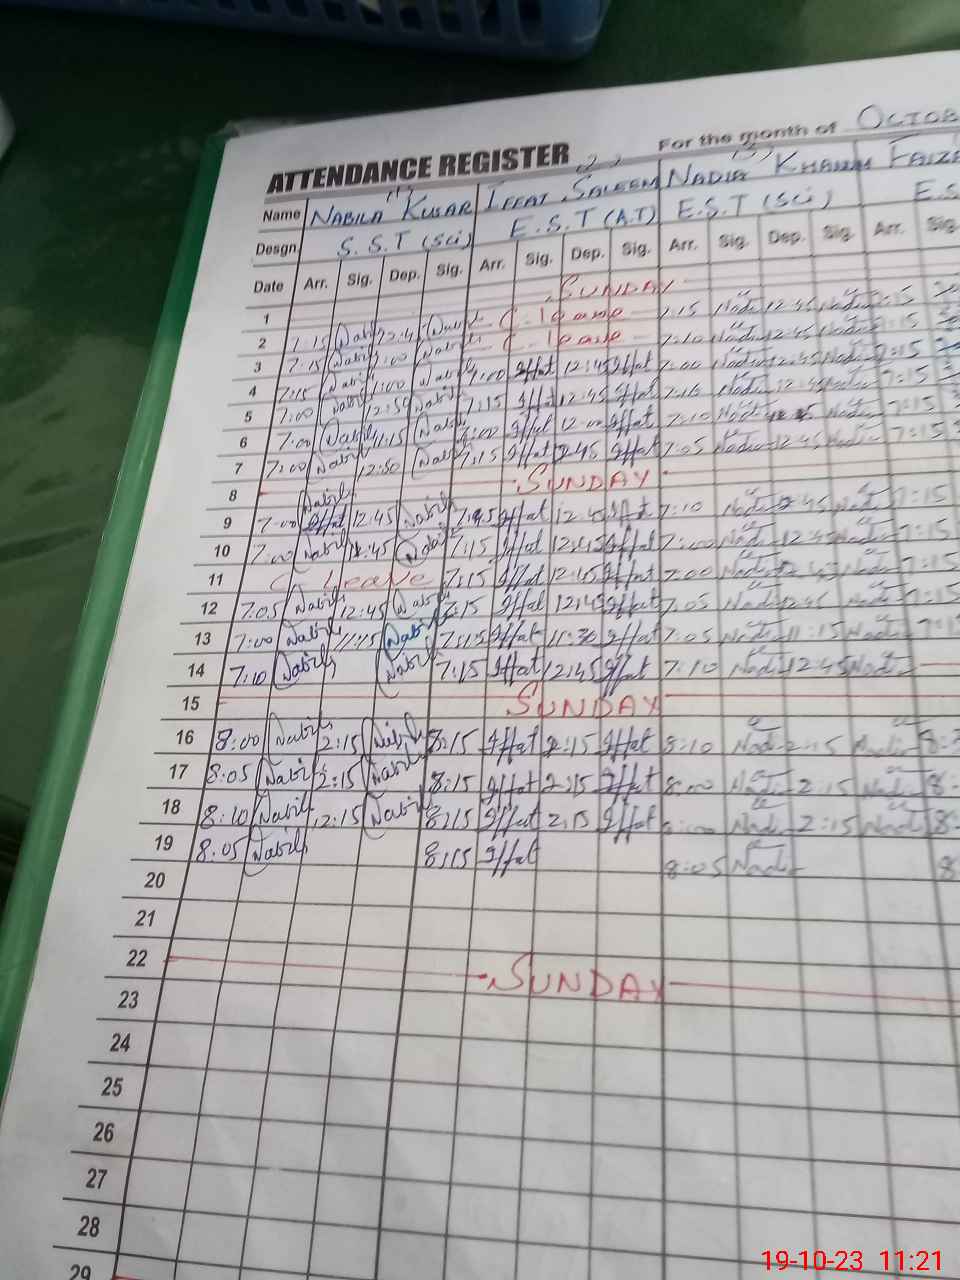 ATTENDANCE REGISTER For the month of OCTOB
(1) (2) (3)
Name NABILA KUSAR IFFAT SALEEM NADIA KHANUM FAIZA
Desgn. S.S.T (Sci) E.S.T (A.T) E.S.T (Sci) E.S
Date Arr. Sig. Dep. Sig. Arr. Sig. Dep. Sig. Arr. Sig. Dep. Sig. Arr. Sig.
1 SUNDAY
2 7:15 Nabila 12:45 Nabila C-leave 7:15 Nadia 12:45 Nadia 7:15
3 7:15 Nabila 1:00 Nabila C-leave 7:10 Nadia 12:45 Nadia 7:15
4 7:15 Nabila 1:00 Nabila 7:00 Iffat 12:45 Iffat 7:00 Nadia 12:45 Nadia 7:15
5 7:00 Nabila 12:50 Nabila 7:15 Iffat 12:45 Iffat Nadia 12:45 Nadia 7:15
6 7:00 Nabila 11:15 Nabila Iffat 12:00 Iffat 7:10 Nadia Nadia 7:15
7 7:00 Nabila 12:50 Nabila 7:15 Iffat 12:45 Iffat 7:05 Nadia 12:45 Nadia 7:15
8 SUNDAY
9 7:00 Nabila Iffat 12:45 Nabila Iffat 12:45 Iffat 7:10 Nadia 12:45 Nadia 7:15
10 7:00 Nabila 12:45 Nabila 7:15 Iffat 12:45 Iffat 7:00 Nadia 12:45 Nadia 7:15
11 C leave 7:15 Iffat 12:45 Iffat 7:00 Nadia 12:45 Nadia 7:15
12 7:05 Nabila 12:45 Nabila 7:15 Iffat 12:45 Iffat 7:05 Nadia 12:45 Nadia 7:15
13 7:00 Nabila 11:15 Nabila 7:15 Iffat 11:30 Iffat 7:05 Nadia 11:15 Nadia
14 7:10 Nabila Nabila 7:15 Iffat 12:45 Iffat 7:10 Nadia 12:45 Nadia
15 SUNDAY
16 8:00 Nabila 2:15 Nabila 8:15 Iffat 2:15 Iffat 8:10 Nadia 2:15 Nadia
17 8:05 Nabila 2:15 Nabila 8:15 Iffat 2:15 Iffat 8:00 Nadia 2:15 Nadia
18 8:10 Nabila 2:15 Nabila 8:15 Iffat 2:15 Iffat 8:00 Nadia 2:15 Nadia
19 8:05 Nabila 8:15 Iffat 8:05 Nadia
20
21
22 SUNDAY
23
24
25
26
27
28
29
19-10-23 11:21